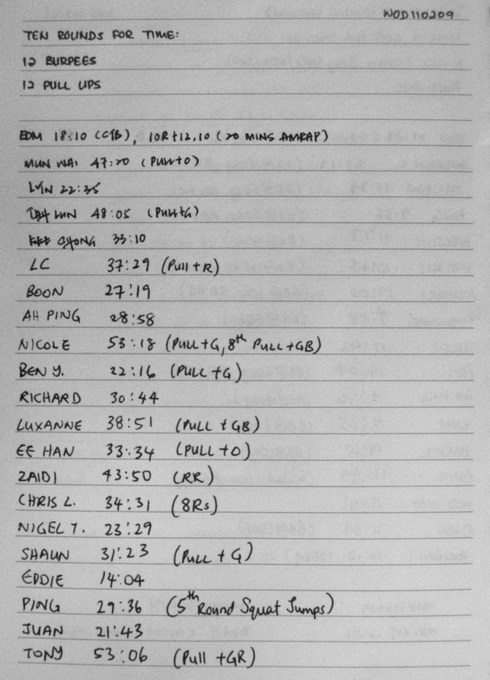 WOD110209
TEN ROUNDS FOR TIME:
12 BURPEES
12 PULL UPS
EDM 18:10 (CTB), 10R+12,10 (20 MINS AMRAP)
MUN WAI 47:20 (PULL+O)
LYN 22:35
48:05 (PULL+G)
33:10
LC 37:29 (Pull+R)
BOON 27:19
AH PING 28:58
NICOLE 53:18 (PULL+G, 8th PULL+GB)
BEN Y. 22:16 (PULL+G)
RICHARD 30:44
LUXANNE 38:51 (PULL+GB)
EE HAN 33:34 (PULL+O)
ZAIDI 43:50 (RR)
CHRIS L. 34:31 (8Rs)
NIGEL T. 23:29
SHAUN 31:23 (PULL+G)
EDDIE 14:04
PING 29:36 (5th Round Squat Jumps)
JUAN 21:43
TONY 53:06 (Pull+GR)